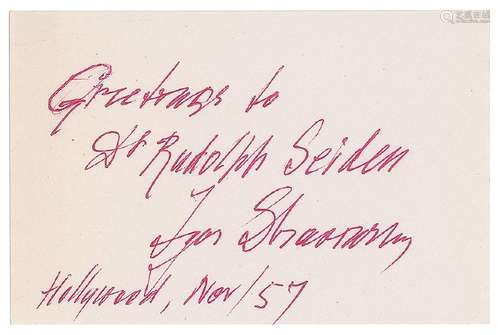 Greetings to
Dr Rudolph Seiden
Igor Stravinsky
Hollywood, Nov/57